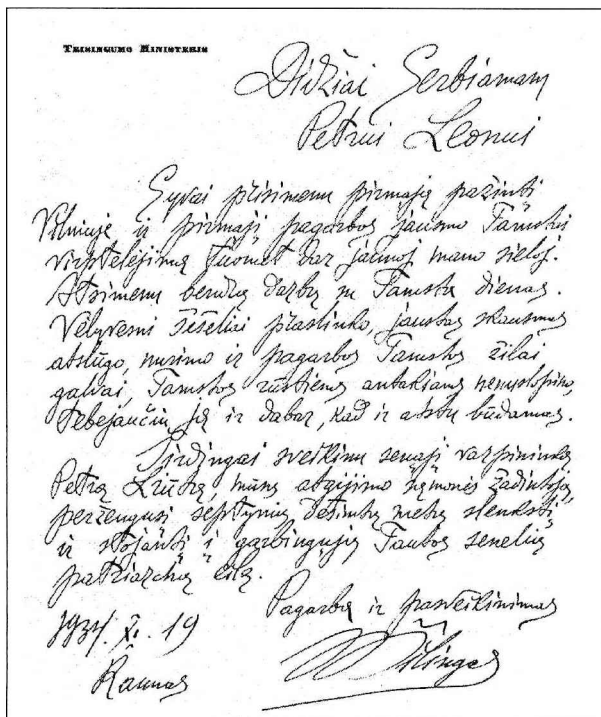 TEISINGUMO MINISTERIS
Didžiai Gerbiamam
Petrui Leonui
Gyvai prisimenu pirmąją pažintį
Vilniuje ir pirmąjį pagarbos jausmo Tamstai
virptelėjimą tuomet dar jaunoj mano sieloj.
Atsimenu bendrų darbų su Tamsta dienas.
Vėlyvesni šešėliai prasilinko, jaustas skausmas
atslūgo, nusimo ir pagarbos Tamstos žilai
galvai, Tamstos rūstiems antakiams nenuslopino,
tebejaučiu ją ir dabar, kad ir atstu būdamas.
Širdingai sveikinu senąjį varpininką
Petrą mūsų atgijimo sąmonės žadintoją,
peržengusį septynių dešimtų metų slenkstį
ir stojantį į garbingųjų Tautos senelių
patriarchų eilę.
Pagarba ir pasveikinimas
1934. X. 19
Kaunas
Šilingas